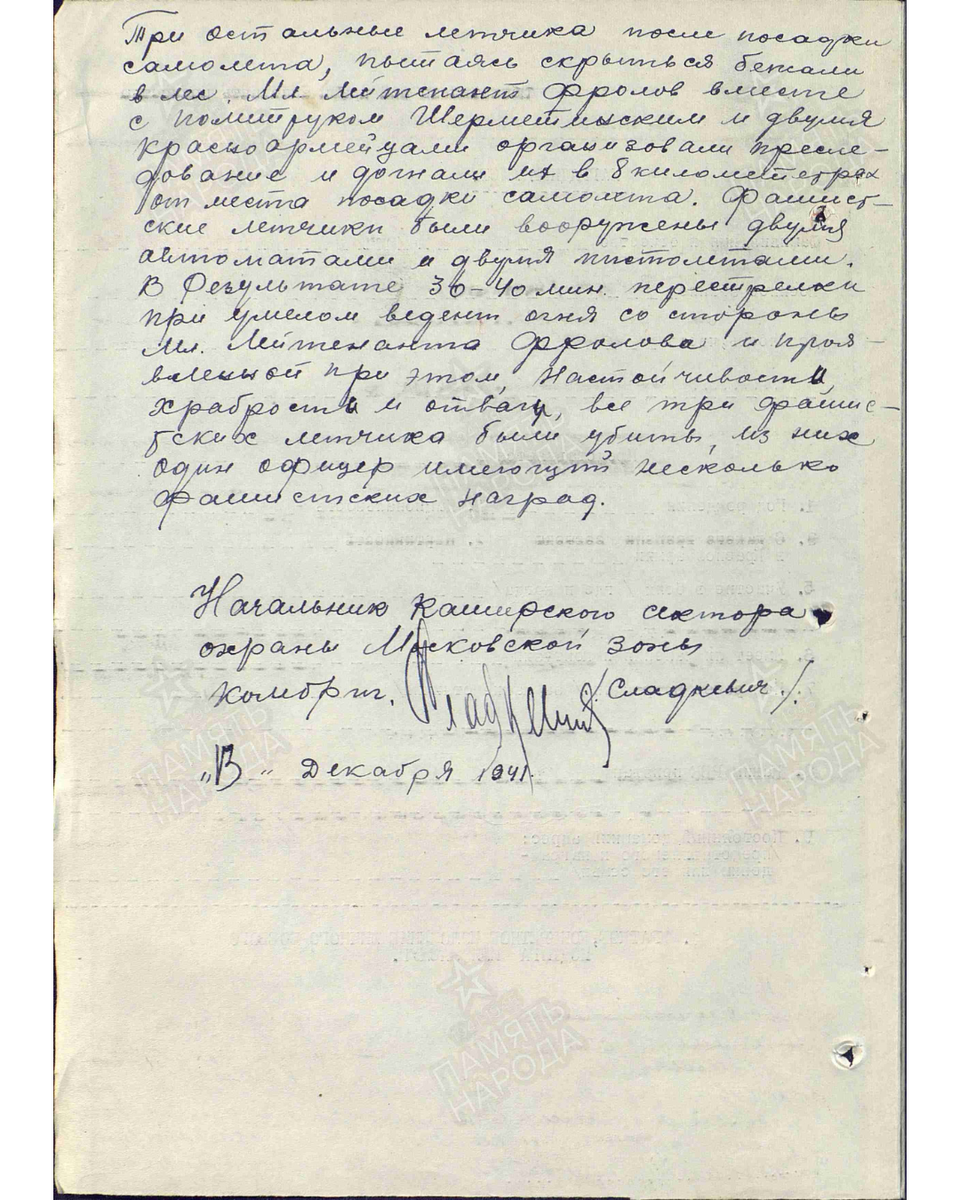 Три остальные летчика после посадки
самолета, пытаясь скрыться бежали
в лес. Мл. Лейтенант Фролов вместе
с политруком Шерметинским и двумя
красноармейцами организовали пресле-
дование и догнали их в 8 километрах
от места посадки самолета. Фашист-
ские летчики были вооружены двумя
автоматами и двумя пистолетами.
В Результате 30-40 мин. перестрелки
при умелом ведент огня со стороны
Мл. Лейтенанта Фролова и проя-
вленной при этом, настойчивости,
храбрость и отвагу, все три фашис-
тских летчика были убиты, из них
один офицер имеющий несколько
фашистских наград.
Начальник Каширского сектора
охраны Московской зоны
Комбриг. Сладкевич /Сладкевич/.
" " Декабря 1941.
ПАМЯТЬ НАРОДА
ПАМЯТЬ НАРОДА
ПАМЯТЬ НАРОДА